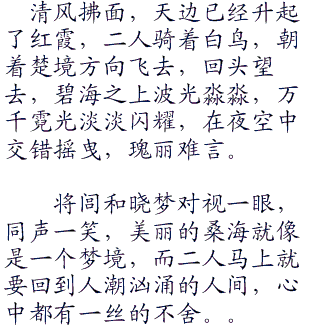 清风拂面，天边已经升起
了红霞，二人骑着白鸟，朝
着楚境方向飞去，回头望
去，碧海之上波光淼淼，万
千霓光淡淡闪耀，在夜空中
交错摇曳，瑰丽难言。
将闾和晓梦对视一眼，
同声一笑，美丽的桑海就像
是一个梦境，而二人马上就
要回到人潮汹涌的人间，心
中都有一丝的不舍。。